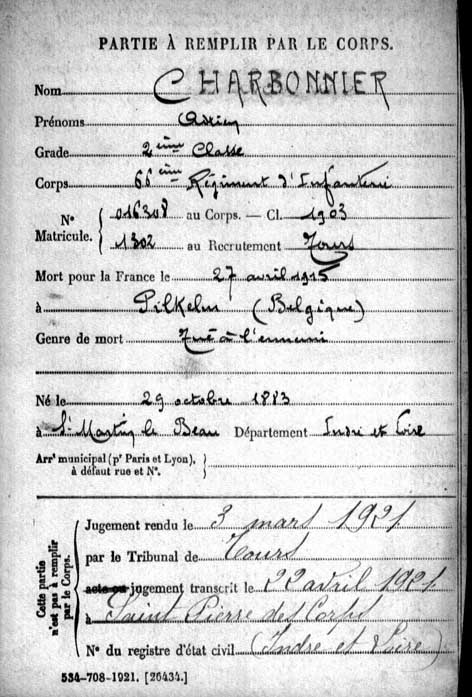 PARTIE À REMPLIR PAR LE CORPS.
Nom CHARBONNIER
Prénoms Adrien
Grade 2ème Classe
Corps 66ème Régiment d'Infanterie
N° Matricule. { 016308 au Corps. — Cl. 1903
1302 au Recrutement Tours
Mort pour la France le 27 avril 1915
à Pilkelm (Belgique)
Genre de mort Tué à l'ennemi
Né le 29 octobre 1883
à St Martin le Beau Département Indre et Loire
Arrt municipal (pr Paris et Lyon), }
à défaut rue et N°.
Cette partie n'est pas à remplir par le Corps.
Jugement rendu le 3 mars 1921
par le Tribunal de Tours
acte ou jugement transcrit le 22 avril 1921
à Saint Pierre des Corps
N° du registre d'état civil (Indre et Loire)
534-708-1921. [26434.]